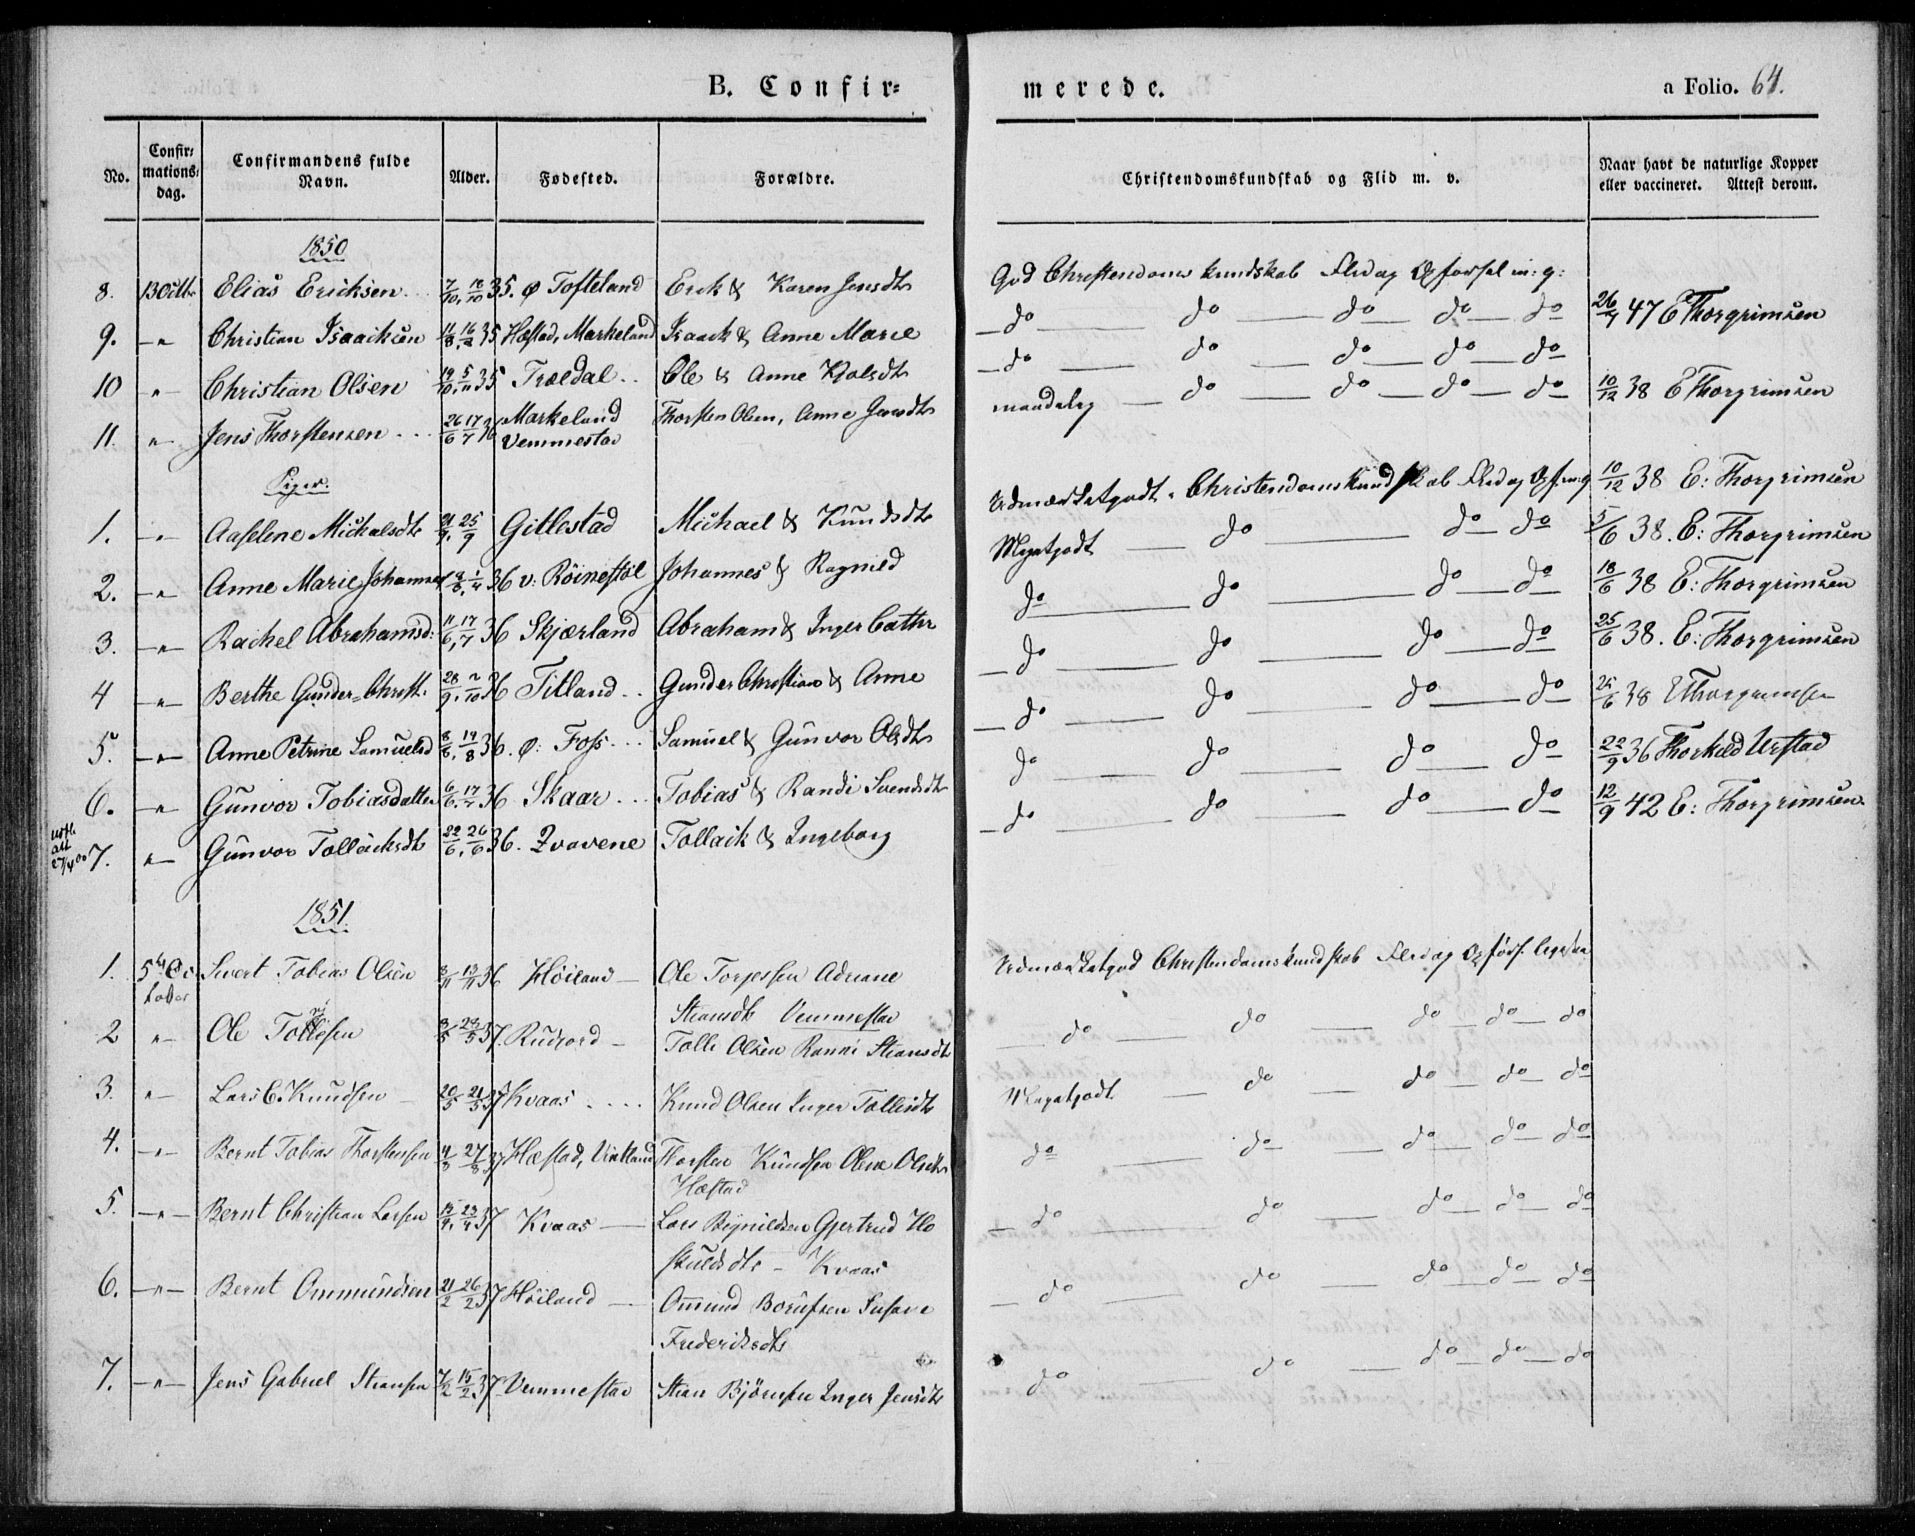 B. Confir=
merede.
a Folio. 64.
No.
Confir=
mations=
dag.
Confirmandens fulde
Navn.
Alder.
Fødested.
Forældre.
Christendomskundskab og Flid m. v.
Naar havt de naturlige Kopper
eller vaccineret. Attest derom.
1850
8. 13 Octbr Elias Ericksen 35. ø Tofteland Erik & Karen Jensdtr God Christendoms kundskab Flid og Opførsel m: g:
9. -"- Christian Isaacksen 11/8, 16/2 35 Hæstad, Markeland Isaack & Anne Marie -do- do do do do 26/7 47 E Thorgrimsen
10 -"- Christian Olsen 35 Trældal Ole & Anne -do do do do do
11. -"- Jens Thorstensen 26/6 17/7 36 Markeland Vemmestad Thorsten Olsen, Anne Jensdtr maadelig do do do do 10/12 38 E Thorgrimsen
Piger.
1. -"- Aaselene Michalsdtr 25/9 Gitlestad Michael & Knudsdtr Udmærketgodt Christendomskundskab Flid og Opf. m: g 10/12 38 E: Thorgrimsen
2. -"- Anne Marie Johannes 36 v: Röinestöl Johannes & Ragnild Megetgodt do do do 5/6 38. E: Thorgrimsen
3. -"- Rachel Abrahamsd: 11/6, 17/7 36 Skjærland Abraham & Inger Cathr do do do do 18/6 38 E: Thorgrimsen
4 -"- Berthe Gunder=Christ: 28/9, 2/10 36 Titland Gunder Christian & Anne do do do do 25/6 38. E: Thorgrimsen
5. -"- Anne Petrine Samuelsd 8/8, 14/8 36. ø: Foss Samuel & Gunvor Olsdtr do do do do 25/6 38 E Thorgrimsen
6. -"- Gunvor Tobiasdatter 36 Skaar Tobias & Randi Svendsdtr do do do do 22/9 36 Thorkild Urstad
7. -"- Gunvor Tollacksdtr 22/6, 26/6 36. Qvavene Tollack & Ingeborg do do do do 12/9 42 E: Thorgrimsen
udst.
att
27/4 00
1851.
1. 5te Oc
tober Sivert Tobias Olsen 13/11 36 Höiland Ole Torjessen Adriane
Stiansdtr Vemmestad Udmærketgod Christendomskundskab Flid og Opførs. ligesaa
2 -"- Ole Tollefsen 37. Rudjord Tolle Olsen Ranni Stiansdtr do do do do do
3. -"- Lars C. Knudsen 20/5 21/5 37 Kvaas Knud Olsen Inger Tollisdtr Megetgodt do do do do
4. -"- Bernt Tobias Thorstensen 27/8 37 Hæstad, Thorsten Knudsen Olene Olsdtr
Hæstad do do do do do
5. -"- Bernt Christian Larsen 15/4, 23/4 37 Kvaas Lars Reynildsen Gjertrud Ho
skuldsdtr - Kvaas do do do do do
6. -"- Bernt Ommundsen 21/2 26/2 37 Höiland Omund Borufsen Susane
Frederiksdtr do do do do do
7. -"- Jens Gabriel Stiansen 7/2 15/2 37 Vemmestad Stian Björnsen Inger Jensdtr do do do do do